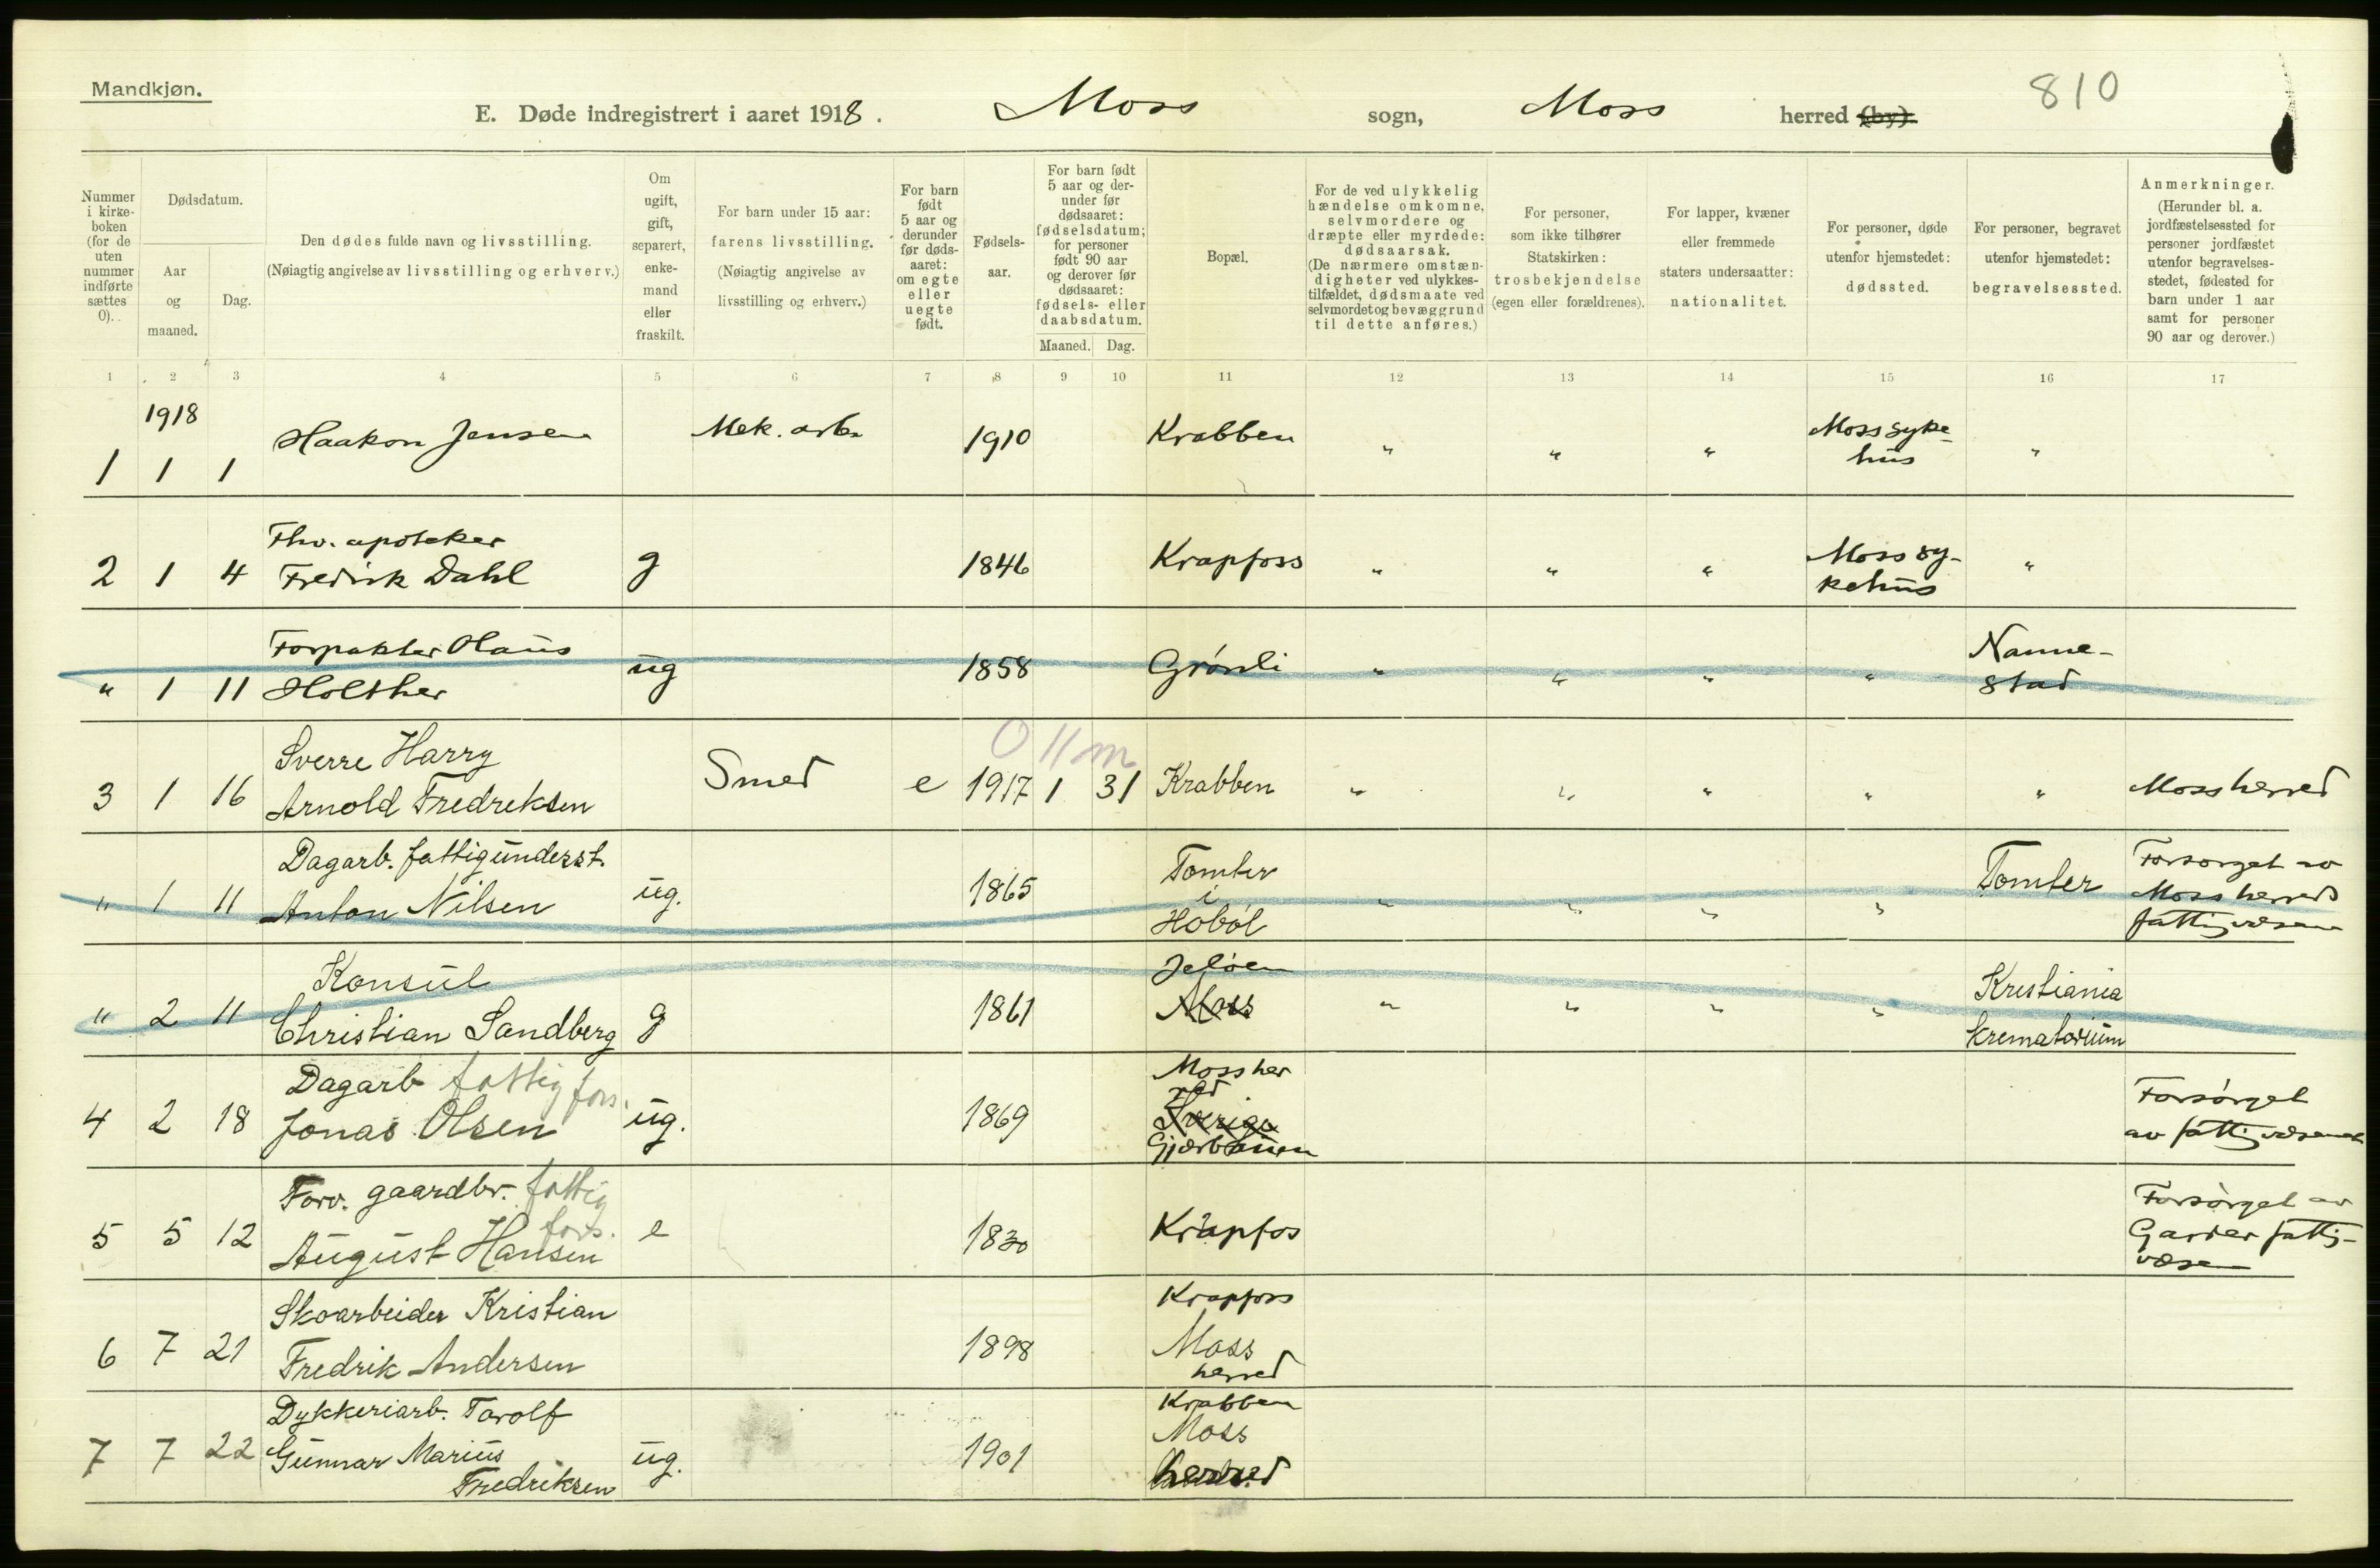 Mandkjøn.
810
E. Døde indregistrert i aaret 1918. Moss sogn, Moss herred (by).
Nummer i kirke-boken (for de uten nummer indførte sættes 0).
Dødsdatum.
Aar og maaned.
Dag.
Den dødes fulde navn og livsstilling.
(Nøiagtig angivelse av livsstilling og erhverv.)
Om ugift, gift, separert, enke-mand eller fraskilt.
For barn under 15 aar: farens livsstilling.
(Nøiagtig angivelse av livsstilling og erhverv.)
For barn født 5 aar og derunder før døds-aaret: om egte eller uegte født.
Fødsels-aar.
For barn født 5 aar og der-under før dødsaaret: fødselsdatum; for personer født 90 aar og derover før dødsaaret: fødsels- eller daabsdatum.
Maaned. Dag.
Bopæl.
For de ved ulykkelig hændelse omkomne, selvmordere og dræpte eller myrdede: dødsaarsak.
(De nærmere omstæn-digheter ved ulykkes-tilfældet, dødsmaate ved selvmordet og bevæggrund til dette anføres.)
For personer, som ikke tilhører Statskirken: trosbekjendelse (egen eller forældrenes).
For lapper, kvæner eller fremmede staters undersaatter: nationalitet.
For personer, døde utenfor hjemstedet: dødssted.
For personer, begravet utenfor hjemstedet: begravelsessted.
Anmerkninger.
(Herunder bl. a. jordfæstelsessted for personer jordfæstet utenfor begravelses-stedet, fødested for barn under 1 aar samt for personer 90 aar og derover.)
1 2 3 4 5 6 7 8 9 10 11 12 13 14 15 16 17
1918
1 1 1 Haakon Jensen Mek. arb. 1910 Krabben " " " Moss syke-
hus "
Fhv. apoteker
2 1 4 Fredrik Dahl g 1846 Krapfoss " " " Moss sy-
kehus "
Forpakter Olaus
" 1 11 Holther ug 1858 Grønli " " " " Nanne-
stad
0 11 m
Sverre Harry
3 1 16 Arnold Fredreksen Smed e 1917 1 31 Krabben " " " " " Moss herred
Dagarb. fattigunderst.
" 1 11 Anton Nilsen ug. 1865 Tomter
i
Hobøl " " " " Tomter Forsørget av
Moss herreds
fattigvæsen
Konsul
" 2 11 Christian Sandberg g 1861 Jeløen
Moss " " " " Kristiania
krematorium
Dagarb fattig fors.
4 2 18 Jonas Olsen ug. 1869 Moss her
red
Sverige
Forsørget
av fattigvæsenet
Forv. gaardbr. fattig
fors.
5 5 12 August Hansen e 1830 Krapfos Forsørget av
Garder fattig-
væsen
Skoarbeider Kristian
6 7 21 Fredrik Andersen 1898 Krapfoss
Moss
herred
Dykkeriarb. Torolf
7 7 22 Gunnar Marius
Fredriksen ug. 1901 Krabben
Moss
herred